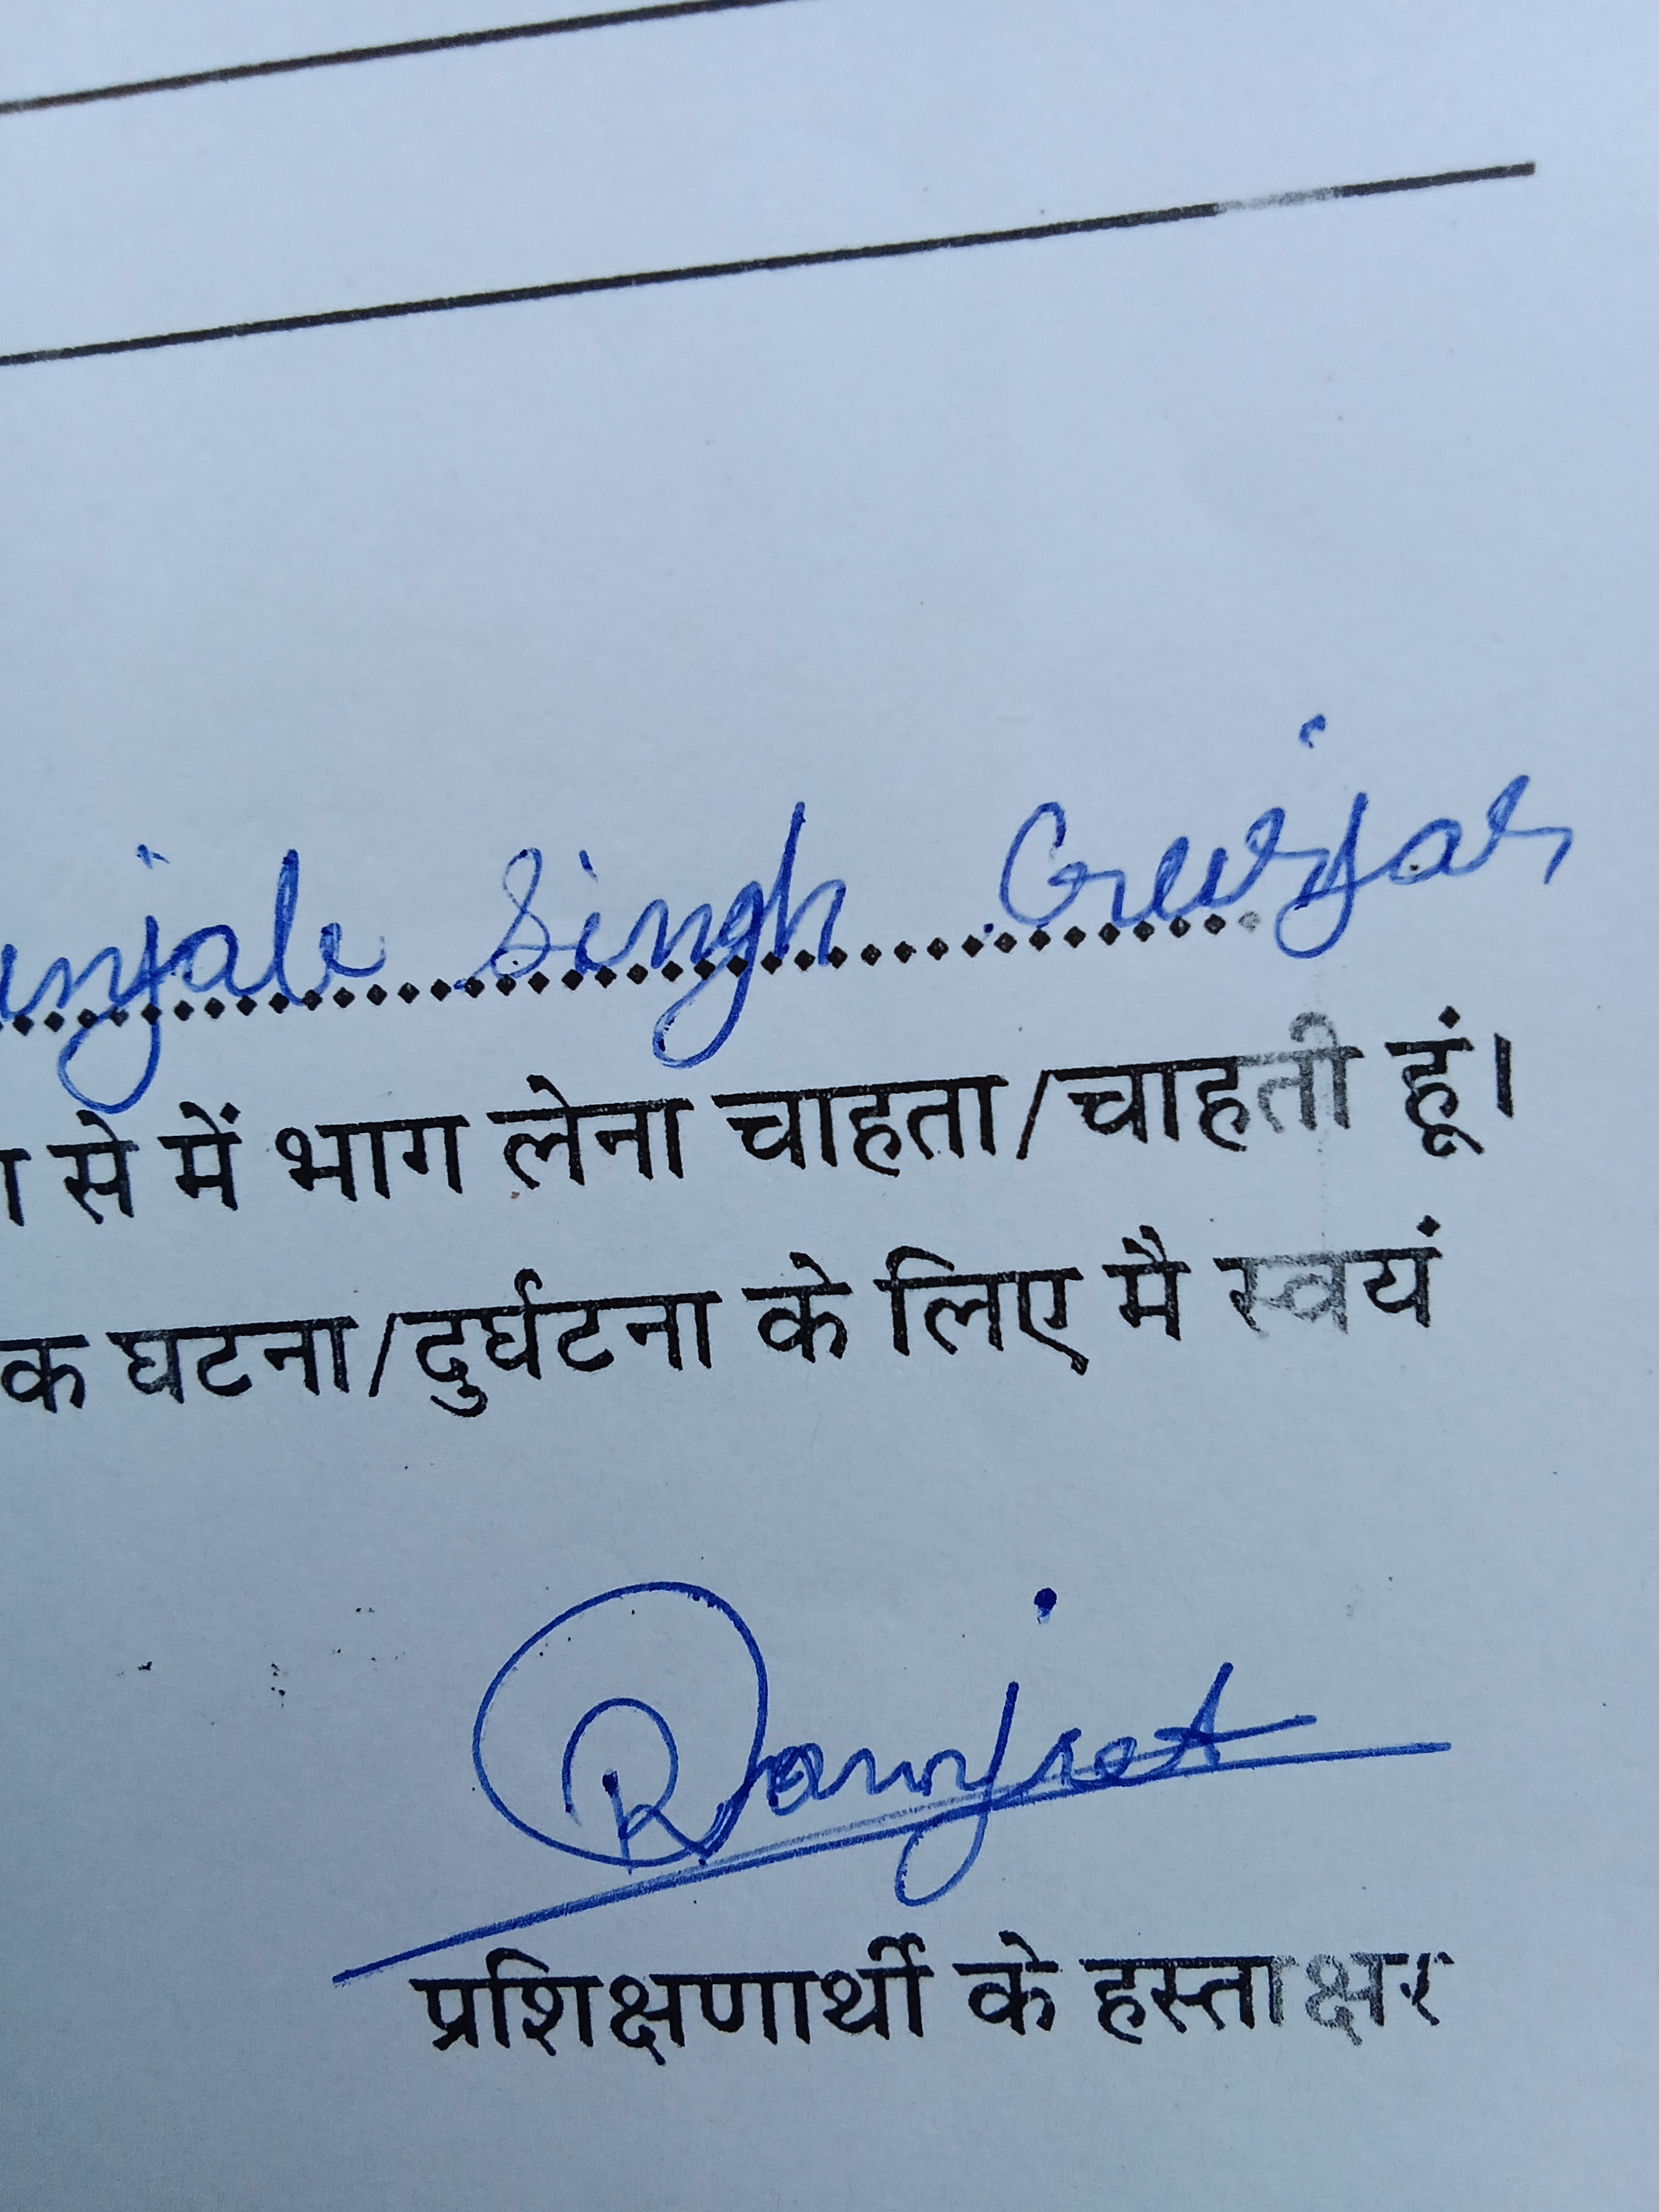 Singh Gurjar
से में भाग लेना चाहता/चाहती हूं।
क घटना/दुर्घटना के लिए मै स्वयं
Ramjeet
प्रशिक्षणार्थी के हस्ताक्षर